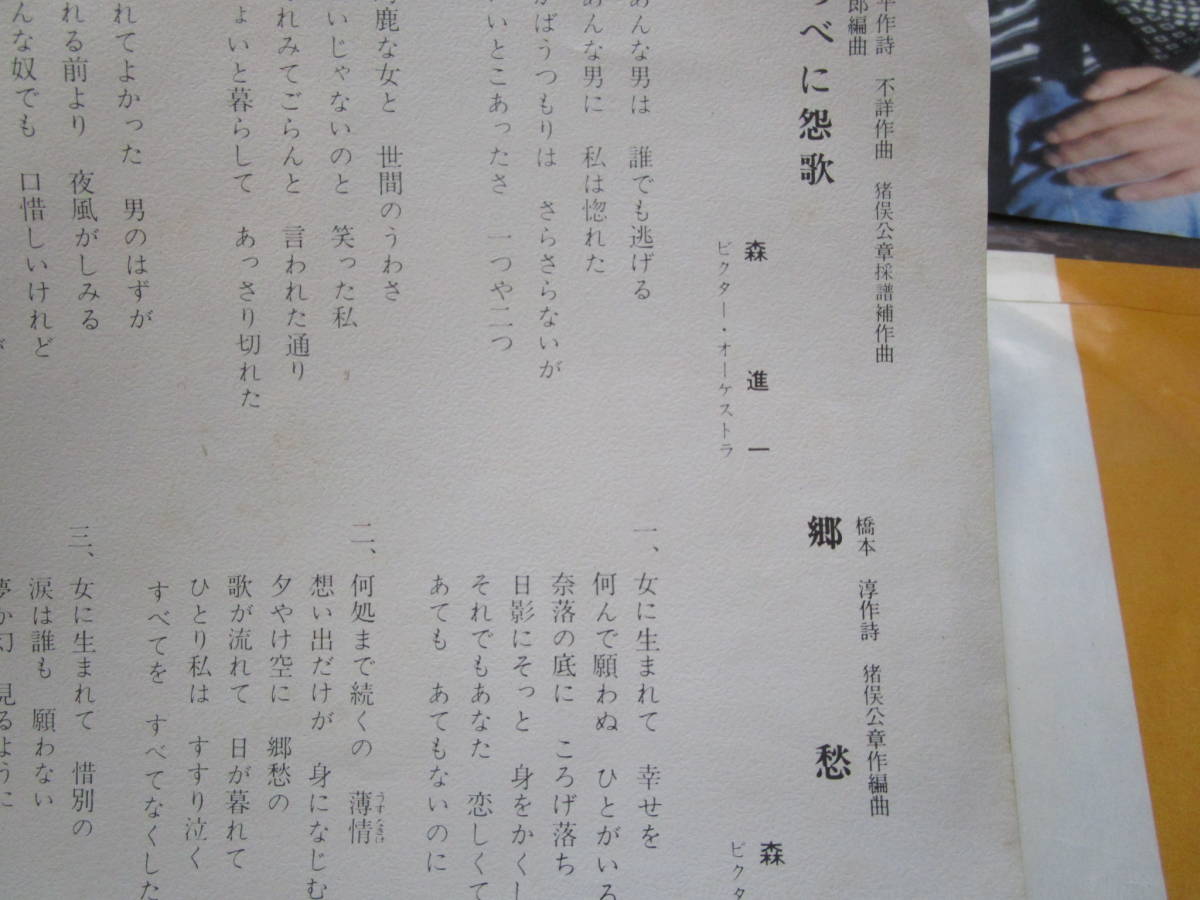 平作詩 不詳作曲 猪俣公章採譜補作曲
郎編曲
べに怨歌
森 進一
ビクター・オーケストラ
あんな男は 誰でも逃げる
あんな男に 私は惚れた
かばうつもりは さらさらないが
いいとこあったさ 一つや二つ
馬鹿な女と 世間のうわさ
いいじゃないのと 笑った私
れみてごらんと 言われた通り
ょいと暮らして あっさり切れた
れてよかった 男のはずが
れる前より 夜風がしみる
んな奴でも 口惜しいけれど
が
橋本 淳作詩 猪俣公章作編曲
郷愁
森
ビクタ
一、女に生まれて 幸せを
何んで願わぬ ひとがいる
奈落の底に ころげ落ち
日影にそっと 身をかくし
それでもあなた 恋しくて
あても あてもないのに
二、何処まで続くの 薄情
うすなさけ
想い出だけが 身になじむ
夕やけ空に 郷愁の
歌が流れて 日が暮れて
ひとり私は すすり泣く
すべてを すべてなくした
三、女に生まれて 惜別の
涙は誰も 願わない
夢か幻 見るように